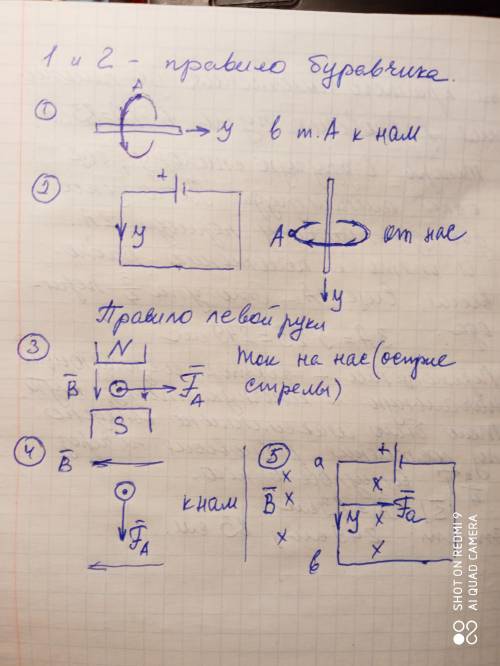 1 и 2 - правило буравчика.
А
① У в т. А к нам
② + У А от нас
У
Правило левой руки
③ N Ток на нас (острие
B̅ F̅A стрелы)
S
④ B̅ ⑤ а +
к нам B̅ У F̅a
F̅A
в
SHOT ON REDMI 9
AI QUAD CAMERA